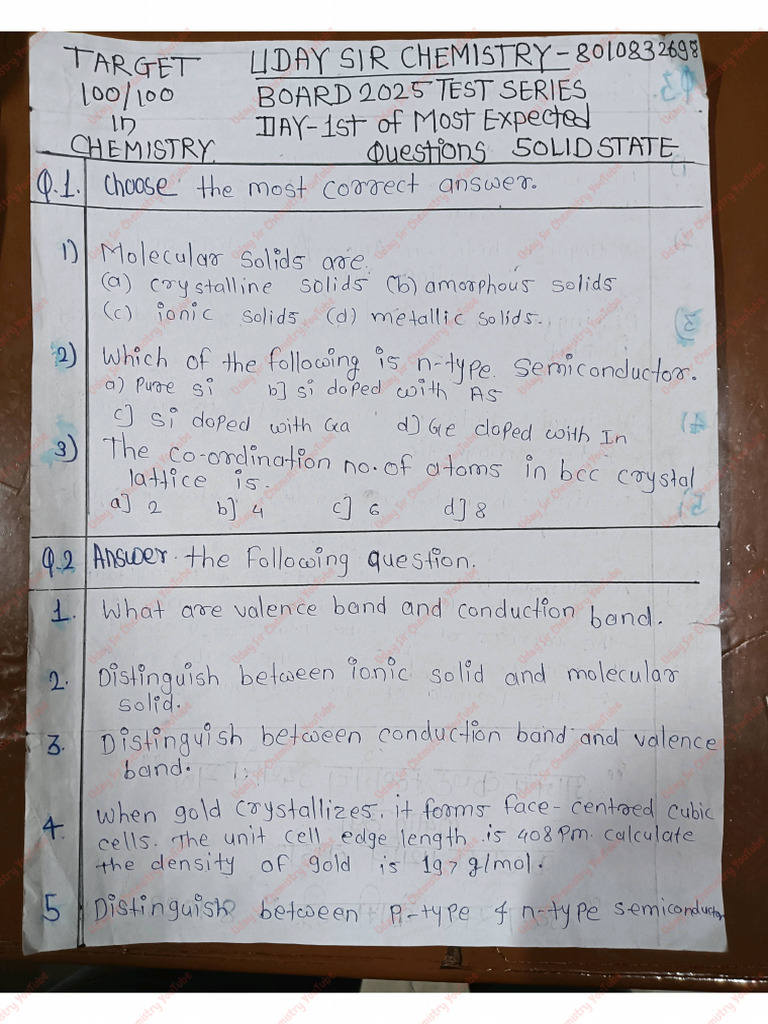 TARGET UDAY SIR CHEMISTRY - 8010832698
100/100 BOARD 2025 TEST SERIES
in DAY-1st of Most Expected
CHEMISTRY. Questions SOLID STATE
Q.1. Choose the most correct answer.
1) Molecular solids are.
(a) crystalline solids (b) amorphous solids
(c) ionic solids (d) metallic solids.
2) Which of the following is n-type semiconductor.
a) Pure si b] si doped with As
c] si doped with Ga d] Ge doped with In
3) The co-ordination no. of atoms in bcc crystal
lattice is.
a] 2 b] 4 c] 6 d] 8
Q.2 Answer the Following question.
1. What are valence band and conduction band.
2. Distinguish between ionic solid and molecular
solid.
3. Distinguish between conduction band and valence
band.
4. When gold crystallizes, it forms face-centred cubic
cells. The unit cell edge length is 408 pm. calculate
the density of gold is 197 g/mol.
5 Distinguish between p-type & n-type semiconductor
Uday Sir Chemistry YouTube